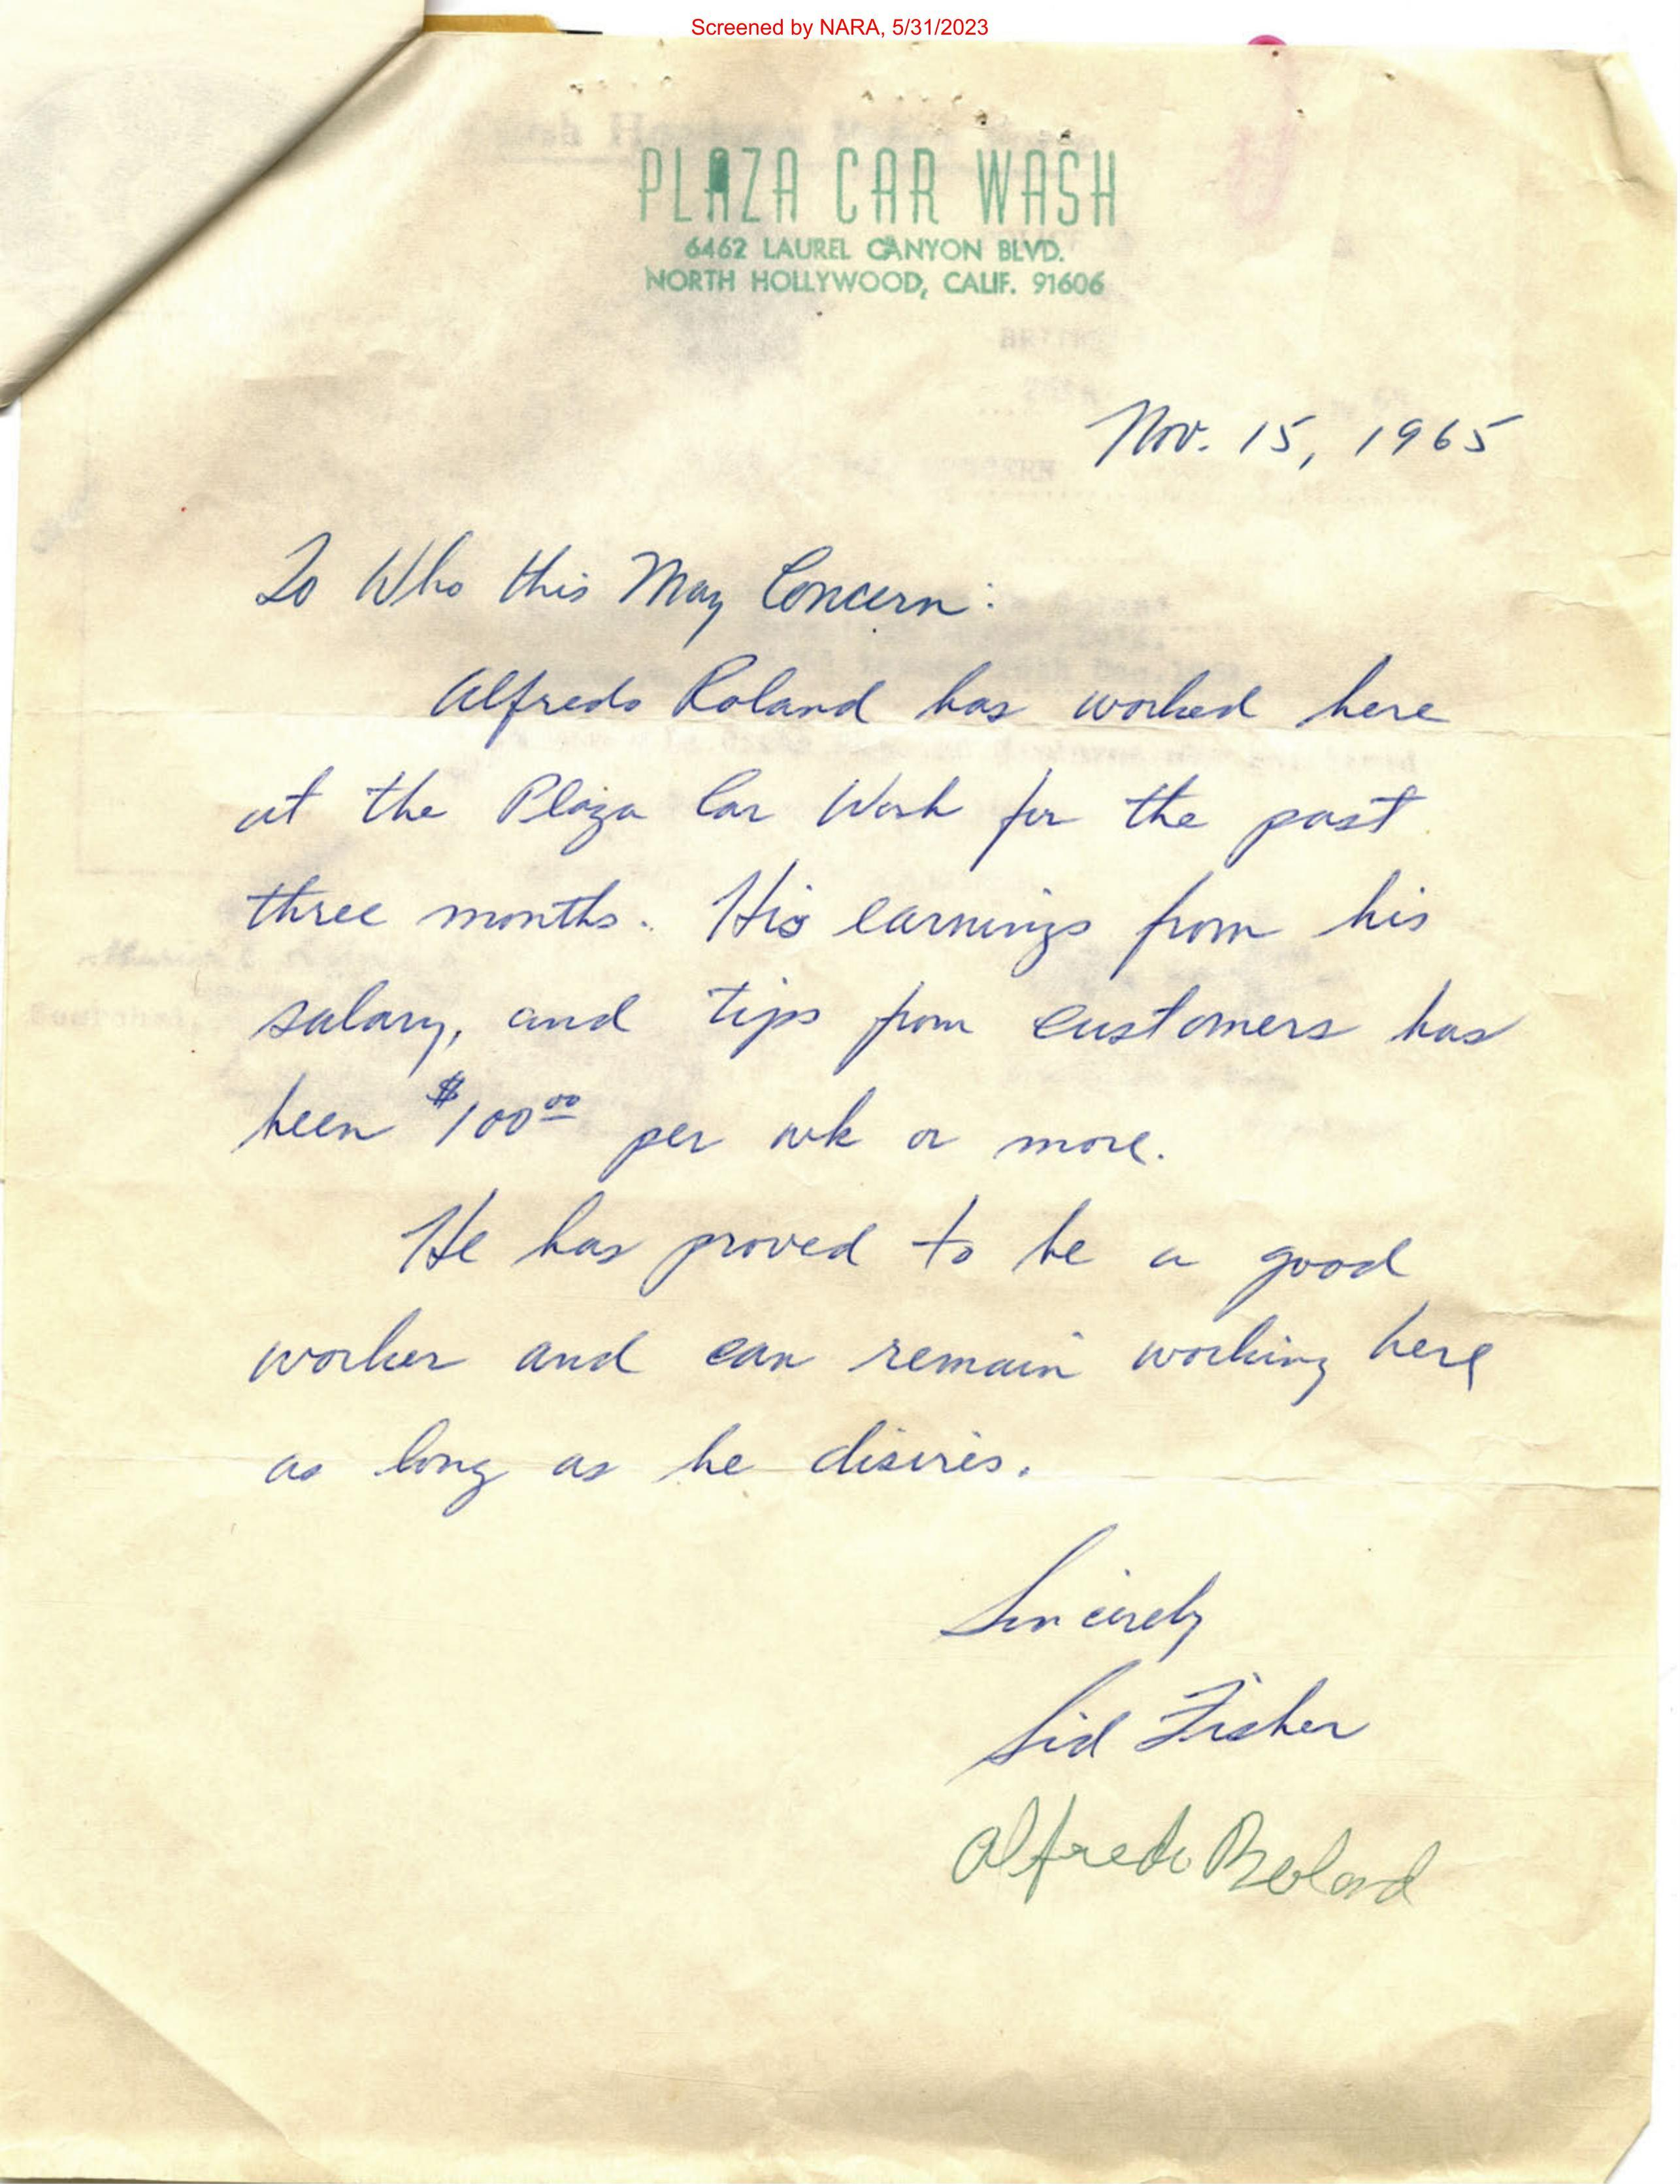 Screened by NARA, 5/31/2023
PLAZA CAR WASH
6462 LAUREL CANYON BLVD.
NORTH HOLLYWOOD, CALIF. 91606
Nov. 15, 1965
To Who this May Concern:
Alfredo Roland has worked here
at the Plaza Car Wash for the past
three months. His earnings from his
salary, and tips from customers has
been $100.00 per wk or more.
He has proved to be a good
worker and can remain working here
as long as he disires.
Sincirely
Sid Fisher
Alfredo Roland